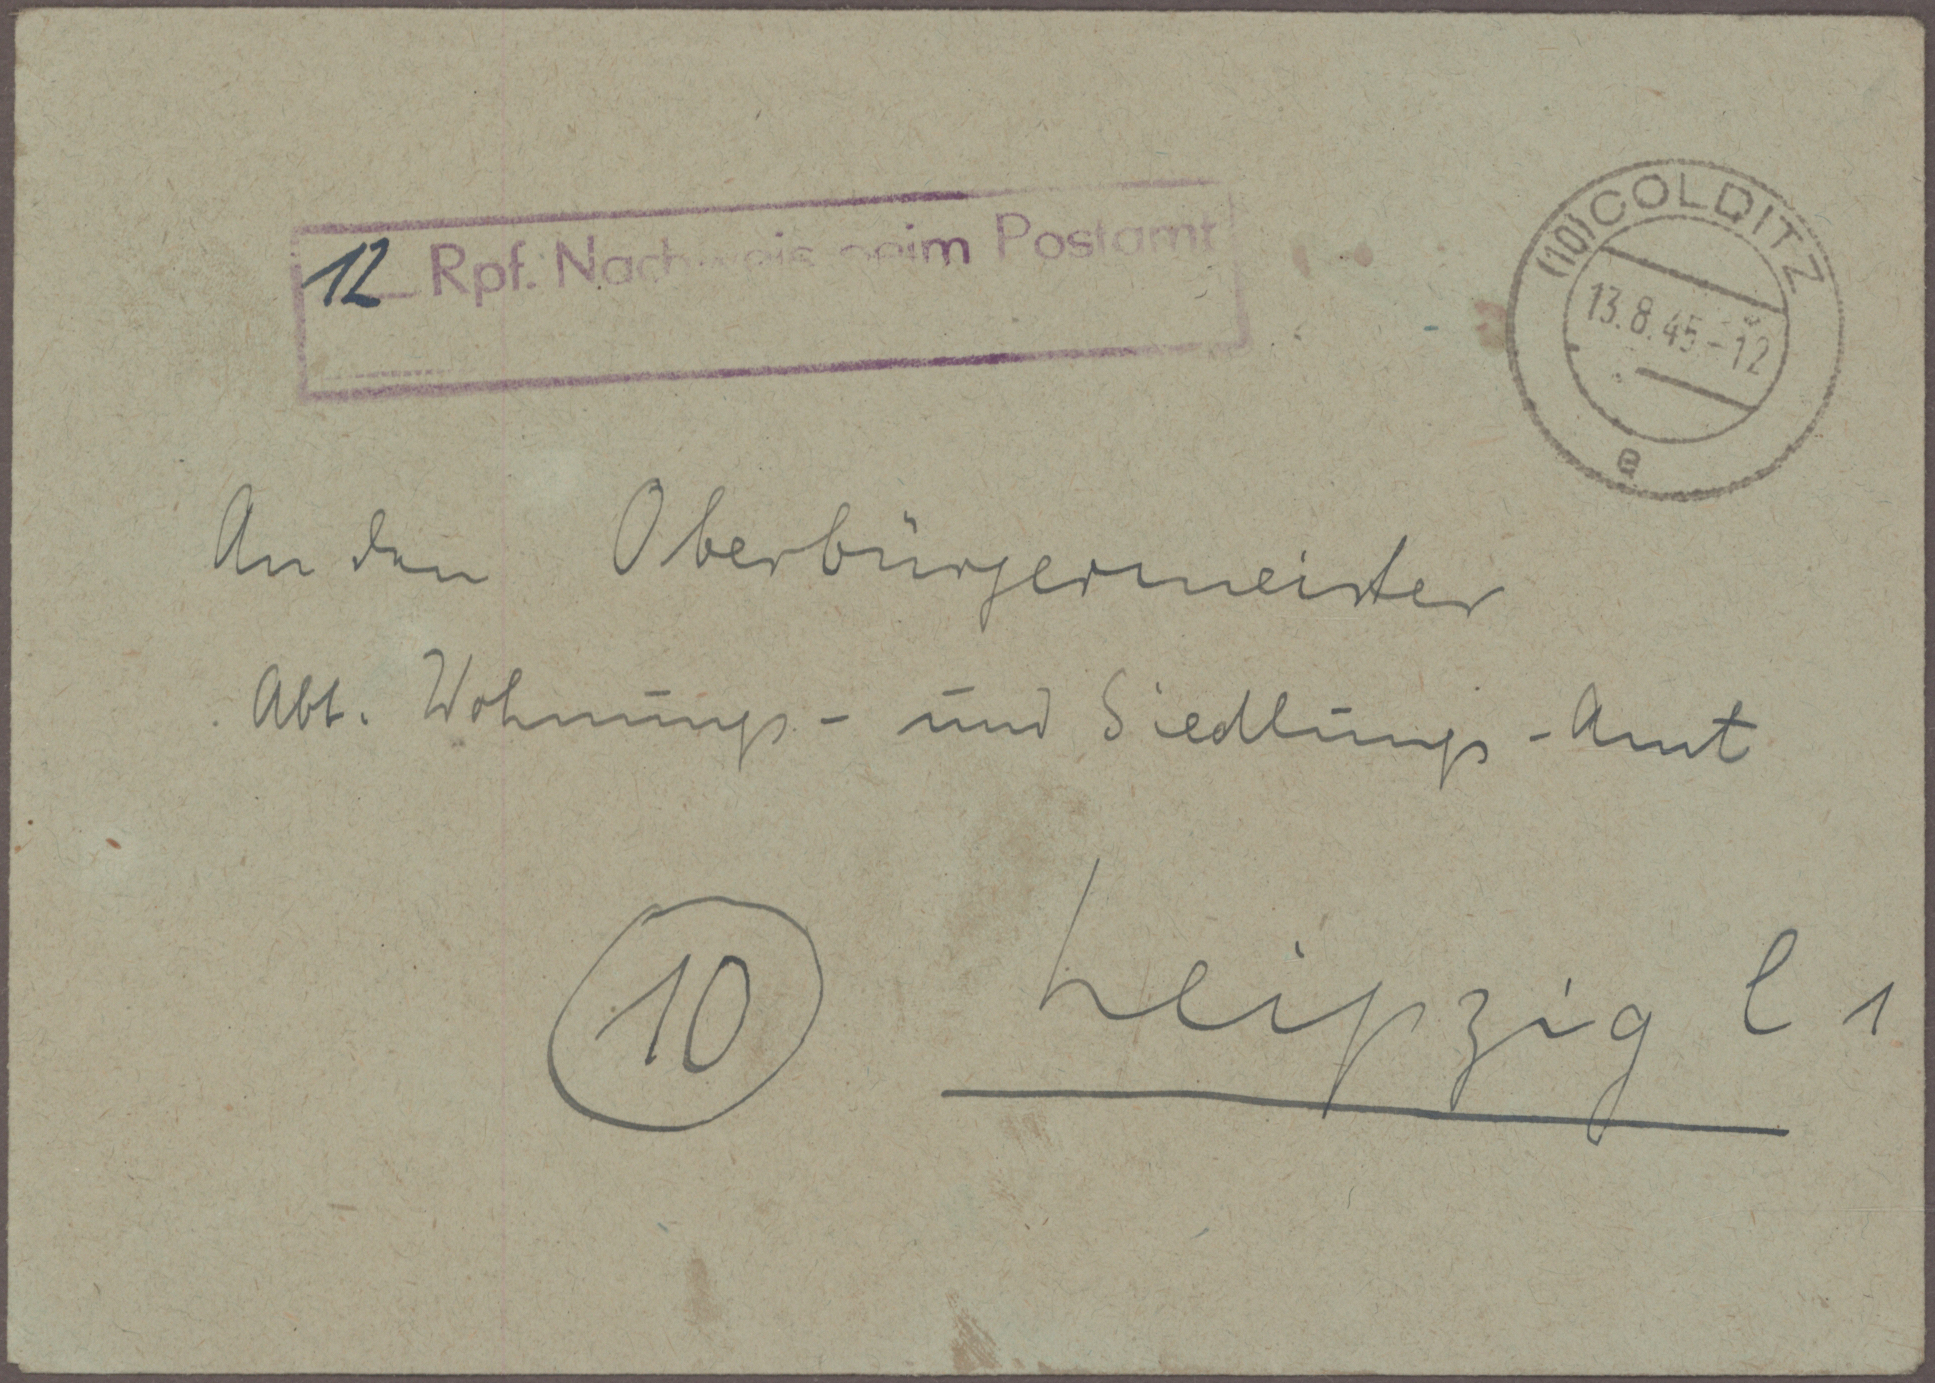 12 Rpf. Nachweis beim Postamt
(10) COLDITZ
13.8.45-12
a
An den Oberbürgermeister
Abt. Wohnungs- und Siedlungs-Amt
(10) Leipzig C 1